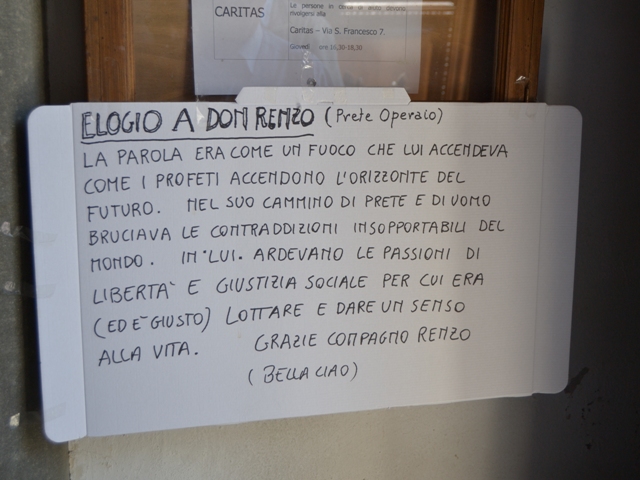 CARITAS
Le persone in
rivolgersi alla
Caritas – Via S. Francesco 7.
Giovedì ore 16,30-18,30
ELOGIO A DON RENZO (Prete Operaio)
LA PAROLA ERA COME UN FUOCO CHE LUI ACCENDEVA
COME I PROFETI ACCENDONO L'ORIZZONTE DEL
FUTURO. NEL SUO CAMMINO DI PRETE E DI UOMO
BRUCIAVA LE CONTRADDIZIONI INSOPPORTABILI DEL
MONDO. IN LUI. ARDEVANO LE PASSIONI DI
LIBERTA' E GIUSTIZIA SOCIALE PER CUI ERA
(ED E' GIUSTO) LOTTARE E DARE UN SENSO
ALLA VITA. GRAZIE COMPAGNO RENZO
(BELLA CIAO)